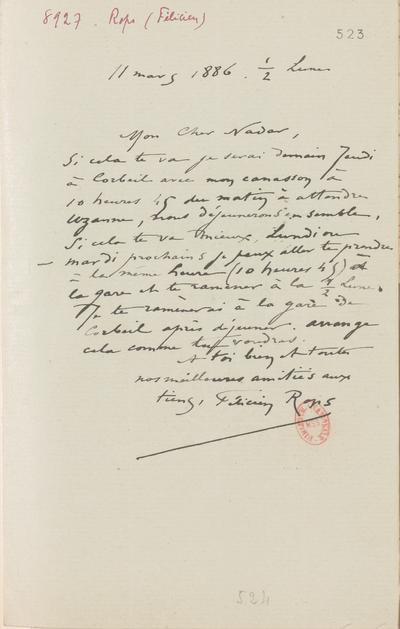 8927. Rops (Félicien)
523
11 mars 1886. 1/2 Lune
Mon Cher Nadar,
Si cela te va je serai demain Jeudi
à Corbeil avec mon canasson à
10 heures 45 du matin à attendre
Uzanne, nous déjeunerons ensemble.
Si cela te va mieux, Lundi ou
mardi prochains je peux aller te prendre
à la même heure (10 heures 45) à
la gare et te ramener à la 1/2 Lune.
Je te ramènerai à la gare de
Corbeil après déjeuner. arrange
cela comme tu voudras.
A toi bien et toutes
nos meilleures amitiés aux
tiens, Félicien Rops
524